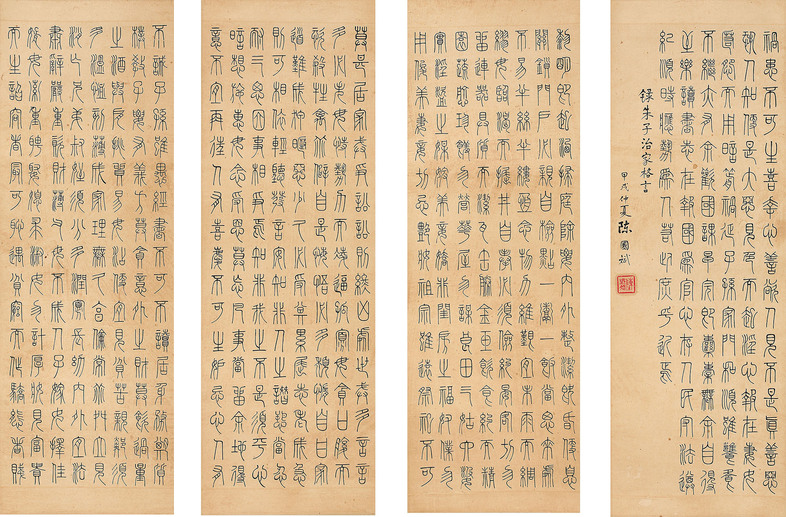 黎明即起洒掃庭除要內外整潔既昏便息
關鎖門戶必親自檢點一粥一飯當思來處
不易半絲半縷恆念物力維艱宜未雨而綢
繆毋臨渴而掘井自奉必須儉約宴客切勿
留連器具質而潔瓦缶勝金玉飲食約而精
園蔬愈珍饈勿營華屋勿謀良田三姑六婆
實淫盜之媒婢美妾嬌非閨房之福奴僕勿
用俊美妻妾切忌艷妝祖宗雖遠祭祀不可
不誠子孫雖愚經書不可不讀居身務期質
樸教子要有義方莫貪意外之財莫飲過量
之酒與肩挑貿易毋佔便宜見貧苦親鄰須
多溫恤刻薄成家理無久享倫常乖舛立見
消亡兄弟叔姪須分多潤寡長幼內外宜法
肅辭嚴重貲財薄父母不成人子嫁女擇佳
婿毋索重聘娶媳求淑女勿計厚奩見富貴
而生諂容者最可恥遇貧窮而作驕態者賤
莫甚居家戒爭訟訟則終凶處世戒多言言
多必失毋恃勢力而凌逼孤寡毋貪口腹而
恣殺牲禽乖僻自是悔悟必多頹惰自甘家
道難成狎昵惡少久必受其累屈志老成急
則可相依輕聽發言安知非人之譖愬當忍
耐三思因事相爭焉知非我之不是須平心
暗想施惠毋念受恩莫忘凡事當留餘地得
意不宜再往人有喜慶不可生妒忌心人有
禍患不可生喜幸心善欲人見不是真善惡
恐人知便是大惡見色而起淫心報在妻女
匿怨而用暗箭禍延子孫家門和順雖饔飧
不繼亦有餘歡國課早完即囊橐無餘自得
至樂讀書志在報國為官心存人民守法遵
紀順時應勢為人若此庶乎近焉
錄朱子治家格言
甲戌仲夏 陳國斌